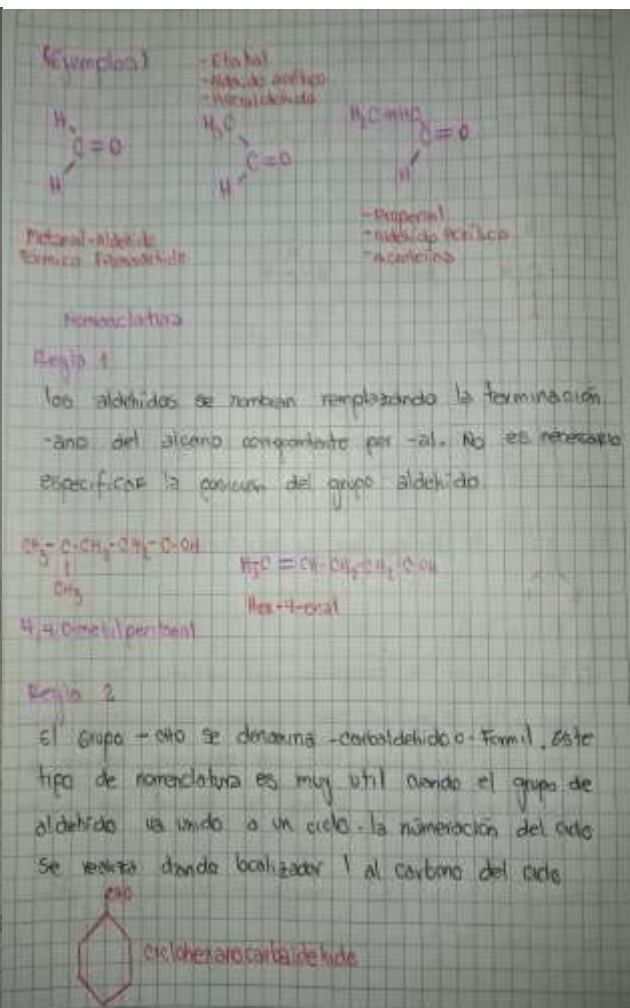 (Ejemplos)
- Etanal
- Aldehído acético
- Acetaldehído
H
C=O
H
H3C
C=O
H
C=O
H
Metanal-aldehido
- Propenal
- Acroleína
Nomenclatura
Regla 1
los aldehidos se nombran remplazando la terminación
-ano del alcano por -al. No es necesario
especificar la posicion del grupo aldehido.
CH3
4,4 Dimetilpentanal
Hex-4-enal
Regla 2
El Grupo -CHO se denomina -carbaldehido o -Formil. Este
tipo de nomenclatura es muy util cuando el grupo de
aldehido va unido a un ciclo. la númeración del ciclo
se realiza dando localizador 1 al carbono del ciclo
CHO
ciclohexanocarbaldehido